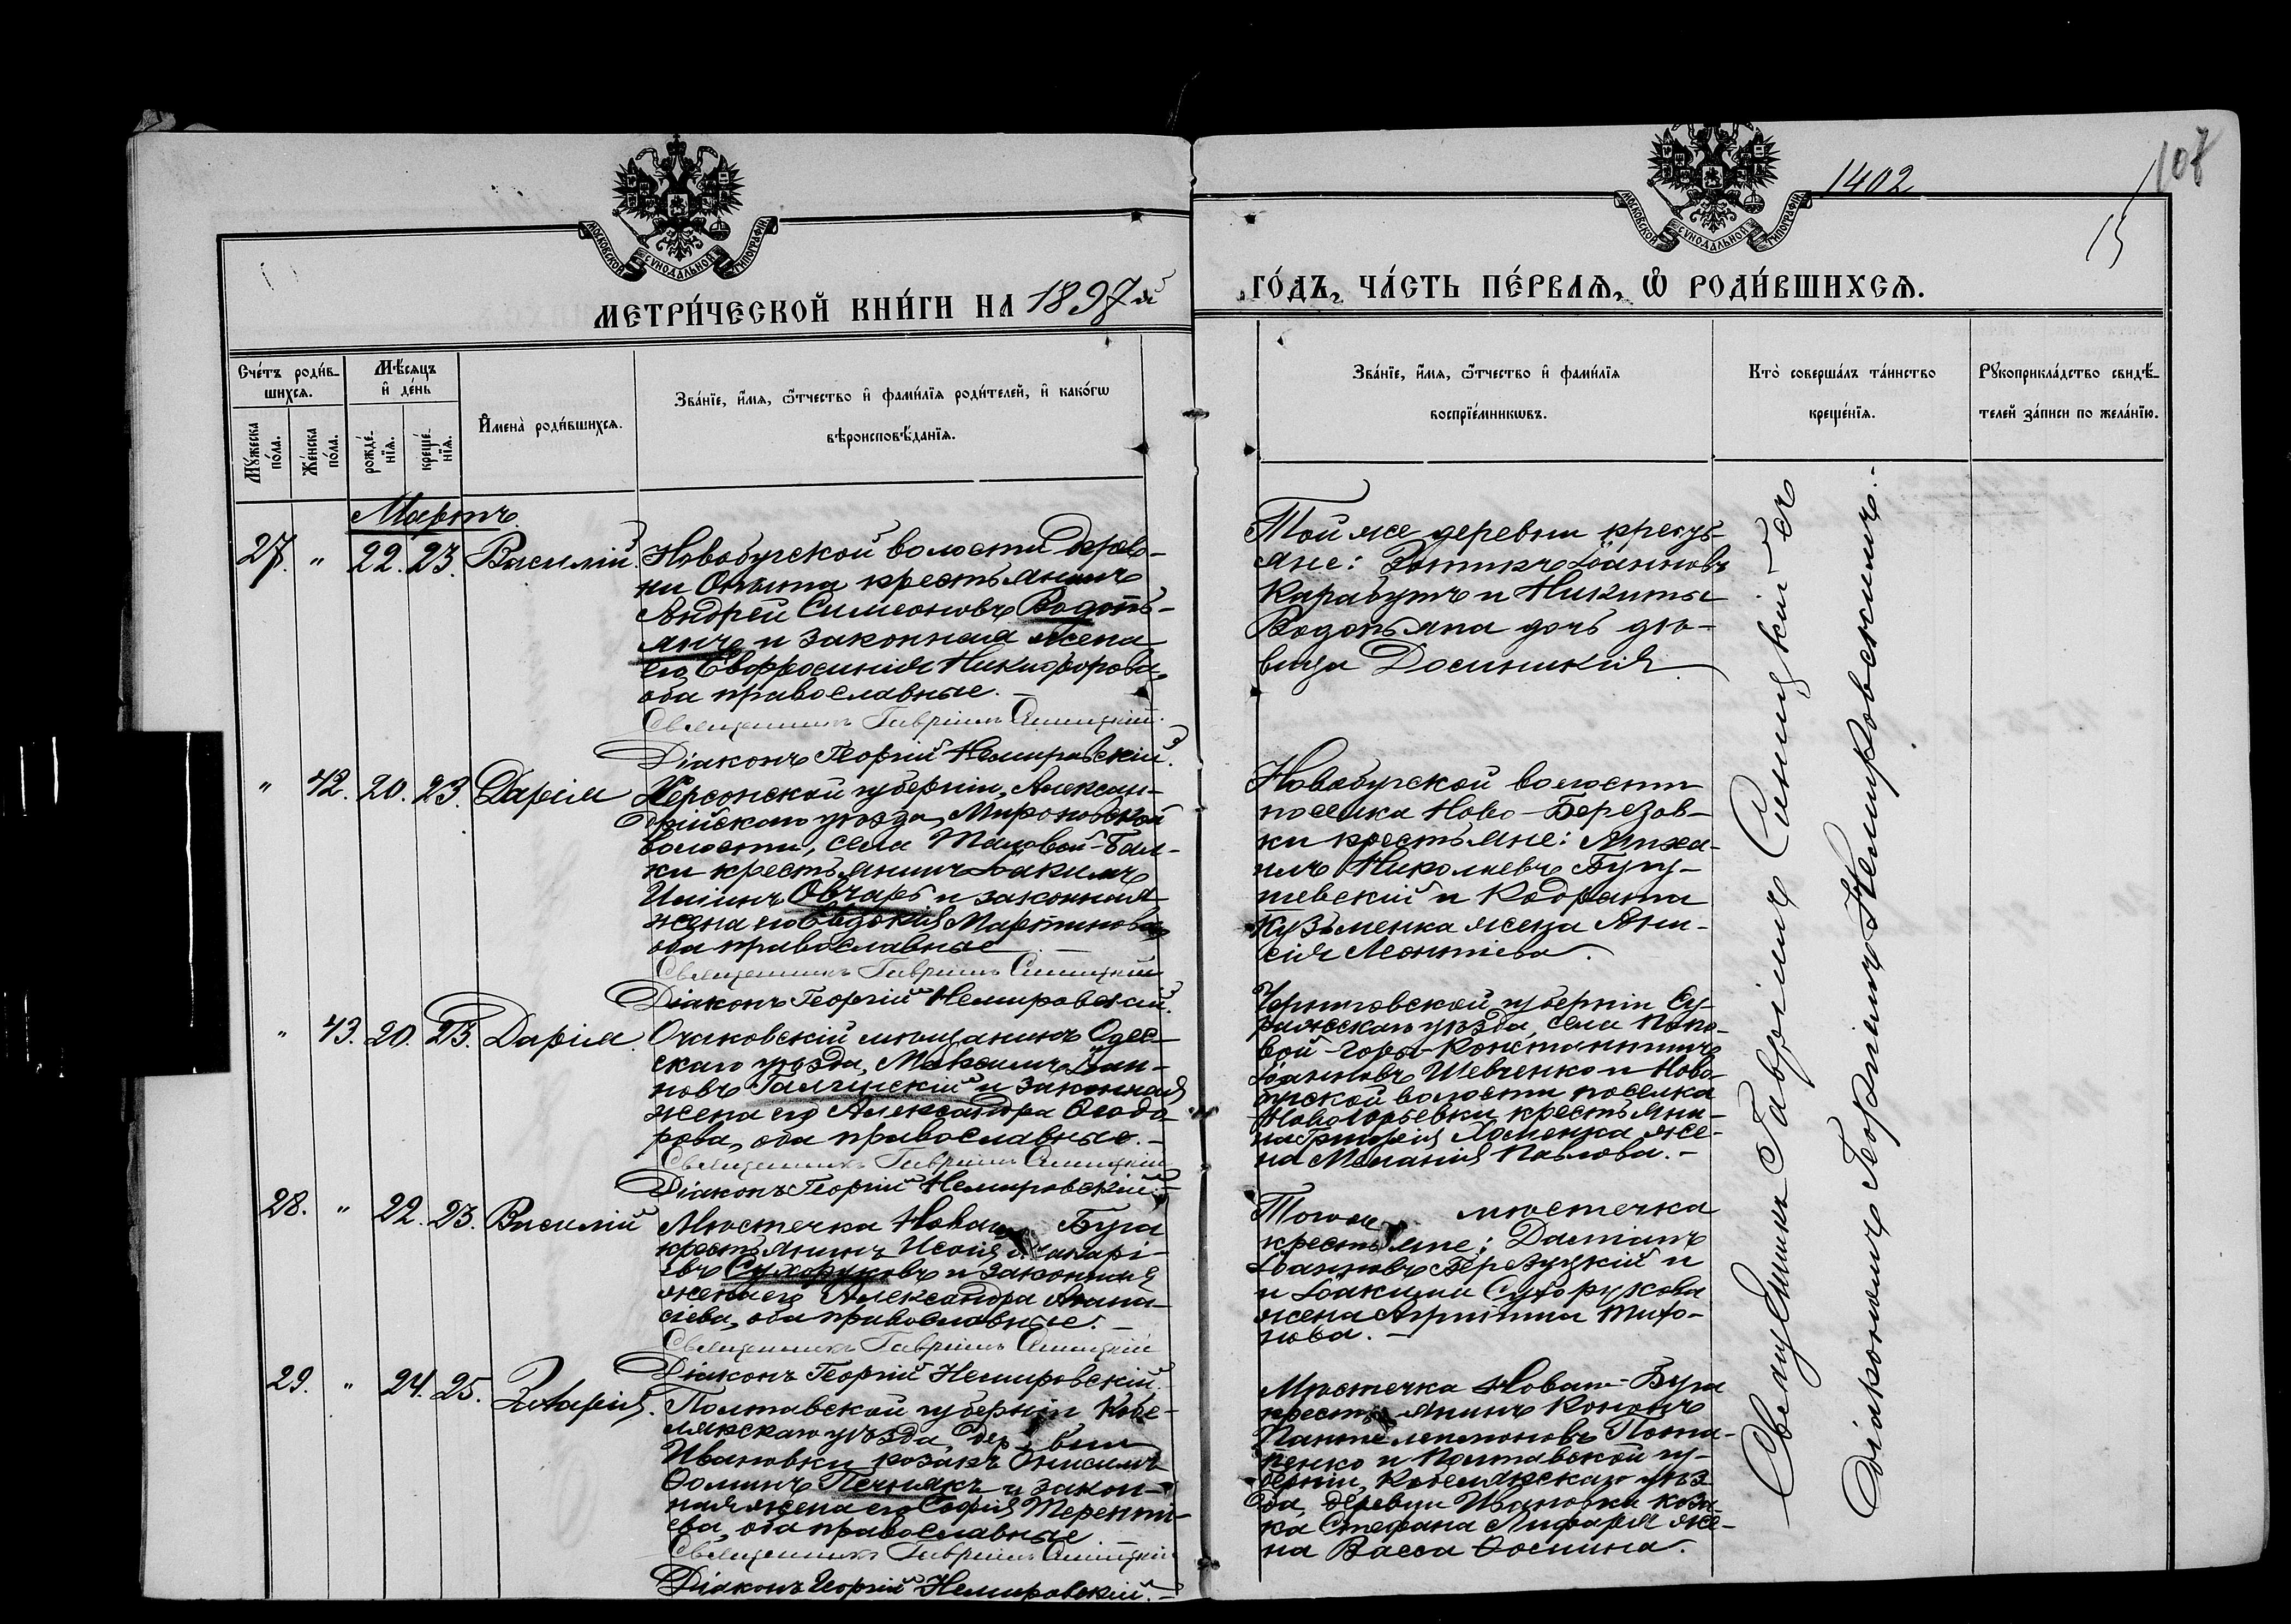 1402
108
15
МОСКОВСКОЙ СѴНОДАЛЬНОЙ ТИПОГРАФІИ
МОСКОВСКОЙ СѴНОДАЛЬНОЙ ТИПОГРАФІИ
МЕТРИ́ЧЕСКОЙ КНИ́ГИ НА 1897й
ГО́ДЪ, ЧА́СТЬ ПЕ́РВАѦ, Ѡ҆ РОДИ́ВШИХСѦ.
Сче́тъ роди́в-
шихсѧ.
Мѣ́сѧцъ
и҆ де́нь
Мꙋ́жеска
по́ла.
Же́нска
по́ла.
рожде́-
нїѧ.
креще́-
нїѧ.
И҆мена̀ роди́вшихсѧ.
Зва́нїе, и҆́мѧ, ѻ҆́тчество и҆ фами́лїѧ роди́телей, и҆ како́гѡ
вѣроисповѣ́данїѧ.
Зва́нїе, и҆́мѧ, ѻ҆́тчество и҆ фами́лїѧ
воспрїе́мникѡвъ.
Кто̀ соверша́лъ та́инство
креще́нїѧ.
Рꙋкоприкла́дство свидѣ́-
телей за́писи по жела́нїю.
Мартъ
27. " 22. 23. Василій
Новобугской волости дерев-
ни Опыта крестьянинъ
Андрей Симеоновъ Водопь-
янъ и законная жена
его Евфросинія Никифорова,
оба православные. —
Священникъ Гавріилъ Синицкій.
Діаконъ Георгій Немировскій.
Той же деревни кресть-
яне: Зотикъ Іоанновъ
Карабутъ и Никиты
Водопьяна дочь дѣ-
вица Досиникія
" 42. 20. 23. Дарія
Херсонской губерніи, Алексан-
дрійскаго уѣзда, Мироновской
волости, села Таловой-Бал-
ки крестьянинъ Іакимъ
Ильинъ Овчаръ и законная
жена его Евдокія Мартинова
оба православные
Священникъ Гавріилъ Синицкій
Діаконъ Георгій Немировскій.
Новобугской волости
поселка Ново-Березов-
ки крестьяне: Миха-
илъ Николаевъ Бугу-
шевскій и Кодрата
Кузьменка жена Ани-
сія Леонтіева.
" 43. 20. 23. Дарія
Очаковскій мѣщанинъ Одес-
скаго уѣзда, Максимъ Іоан-
новъ Галчинскій и законная
жена его Александра Ѳеодо-
рова, оба православные. —
Священникъ Гавріилъ Синицкій
Діаконъ Георгій Немировскій. —
Черниговской губерніи Су-
ражскаго уѣзда, села Попо-
вой-Горы Константинъ
Іоанновъ Шевченко и Ново-
бугской волости поселка
крестьяни-
на Григорія Хоменка же-
на Меланія Павлова. —
28. " 22. 23. Василій
Мѣстечка Новаго Буга
крестьянинъ Исаія Макарі-
евъ Сухоруковъ и законная
жена его Александра Аѳана-
сіева, оба православные. —
Священникъ Гавріилъ Синицкій
Діаконъ Георгій Немировскій.
Того же мѣстечка
крестьяне: Даміанъ
Іоанновъ Березуцкій и
и Іоакима Сухорукова
жена Агрипина Тихо-
нова. —
29. " 24. 25. Захарія.
Полтавской губерніи Кобе-
лякскаго уѣзда, деревни
Ивановки козакъ Онисимъ
Ѳоминъ и закон-
ная жена его Софія Терентi-
ева, оба православные
Священникъ Гавріилъ Синицкій
Діаконъ Георгій Немировскій. —
Мѣстечка Новаго-Буга
крестьянинъ Кононъ
Пантелеимоновъ Пота-
пенко и Полтавской гу-
берніи, Кобелякскаго уѣз-
да, деревни Ивановки коза-
ка Стефана Лифаря же-
на Васса Ѳомина.
Священникъ Гавріилъ Синицкій съ
діакономъ Георгіемъ Немировскимъ. —